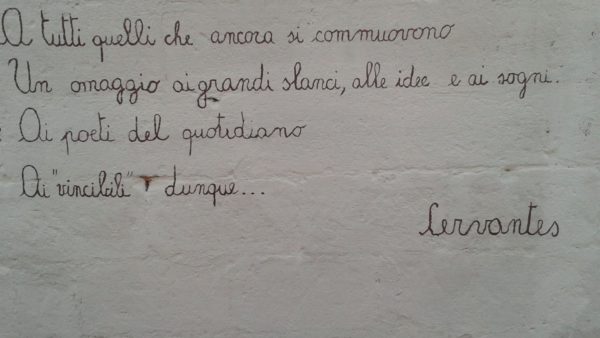 A tutti quelli che ancora si commuovono
Un omaggio ai grandi slanci, alle idee e ai sogni.
Ai poeti del quotidiano
Ai "vincibili" dunque...
Cervantes